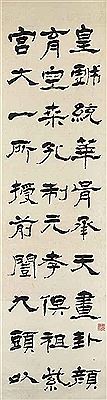 皇戲統華胥承天畫卦顏
育空桑孔制元孝俱祖紫
宮大一所授前闓九頭以